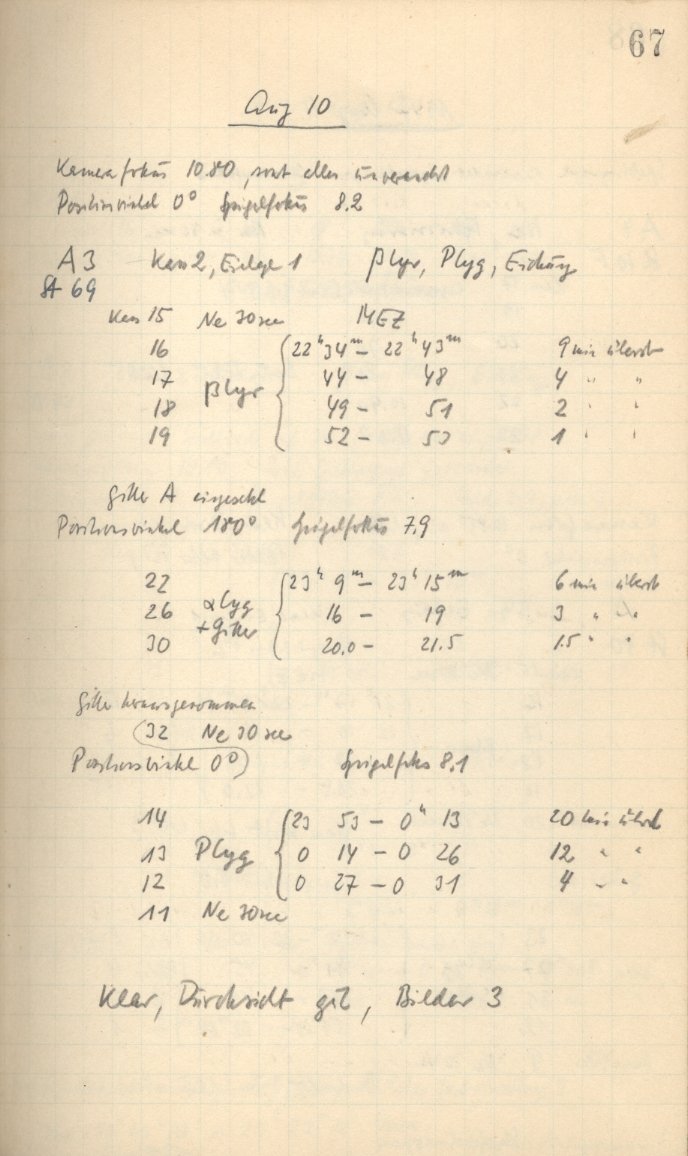 67
Aug 10
Kamerafokus 10.80, sonst alles unverändert
Positionswinkel 0° Spiegelfokus 8.2
A3 Kass 2, Einlage 1 β Lyr, P Cyg, Eichung
St 69
Kass 15 Ne 30 sec MEZ
16 22ʰ34ᵐ – 22ʰ43ᵐ 9 min überst
17 44 – 48 4 " "
18 β Lyr 49 – 51 2 " "
19 52 – 53 1 " "
Gitter A eingesetzt
Positionswinkel 180° Spiegelfokus 7.9
22 23ʰ 9ᵐ – 23ʰ 15ᵐ 6 min überst
26 α Cyg 16 – 19 3 " "
+ Gitter
30 20.0 – 21.5 1.5 " "
Gitter herausgenommen
(32 Ne 30 sec
Positionswinkel 0°) Spiegelfokus 8.1
14 23 53 – 0ʰ 13 20 min überst
13 P Cyg 0 14 – 0 26 12 " "
12 0 27 – 0 31 4 " "
11 Ne 30 sec
Klar, Durchsicht gut, Bilder 3